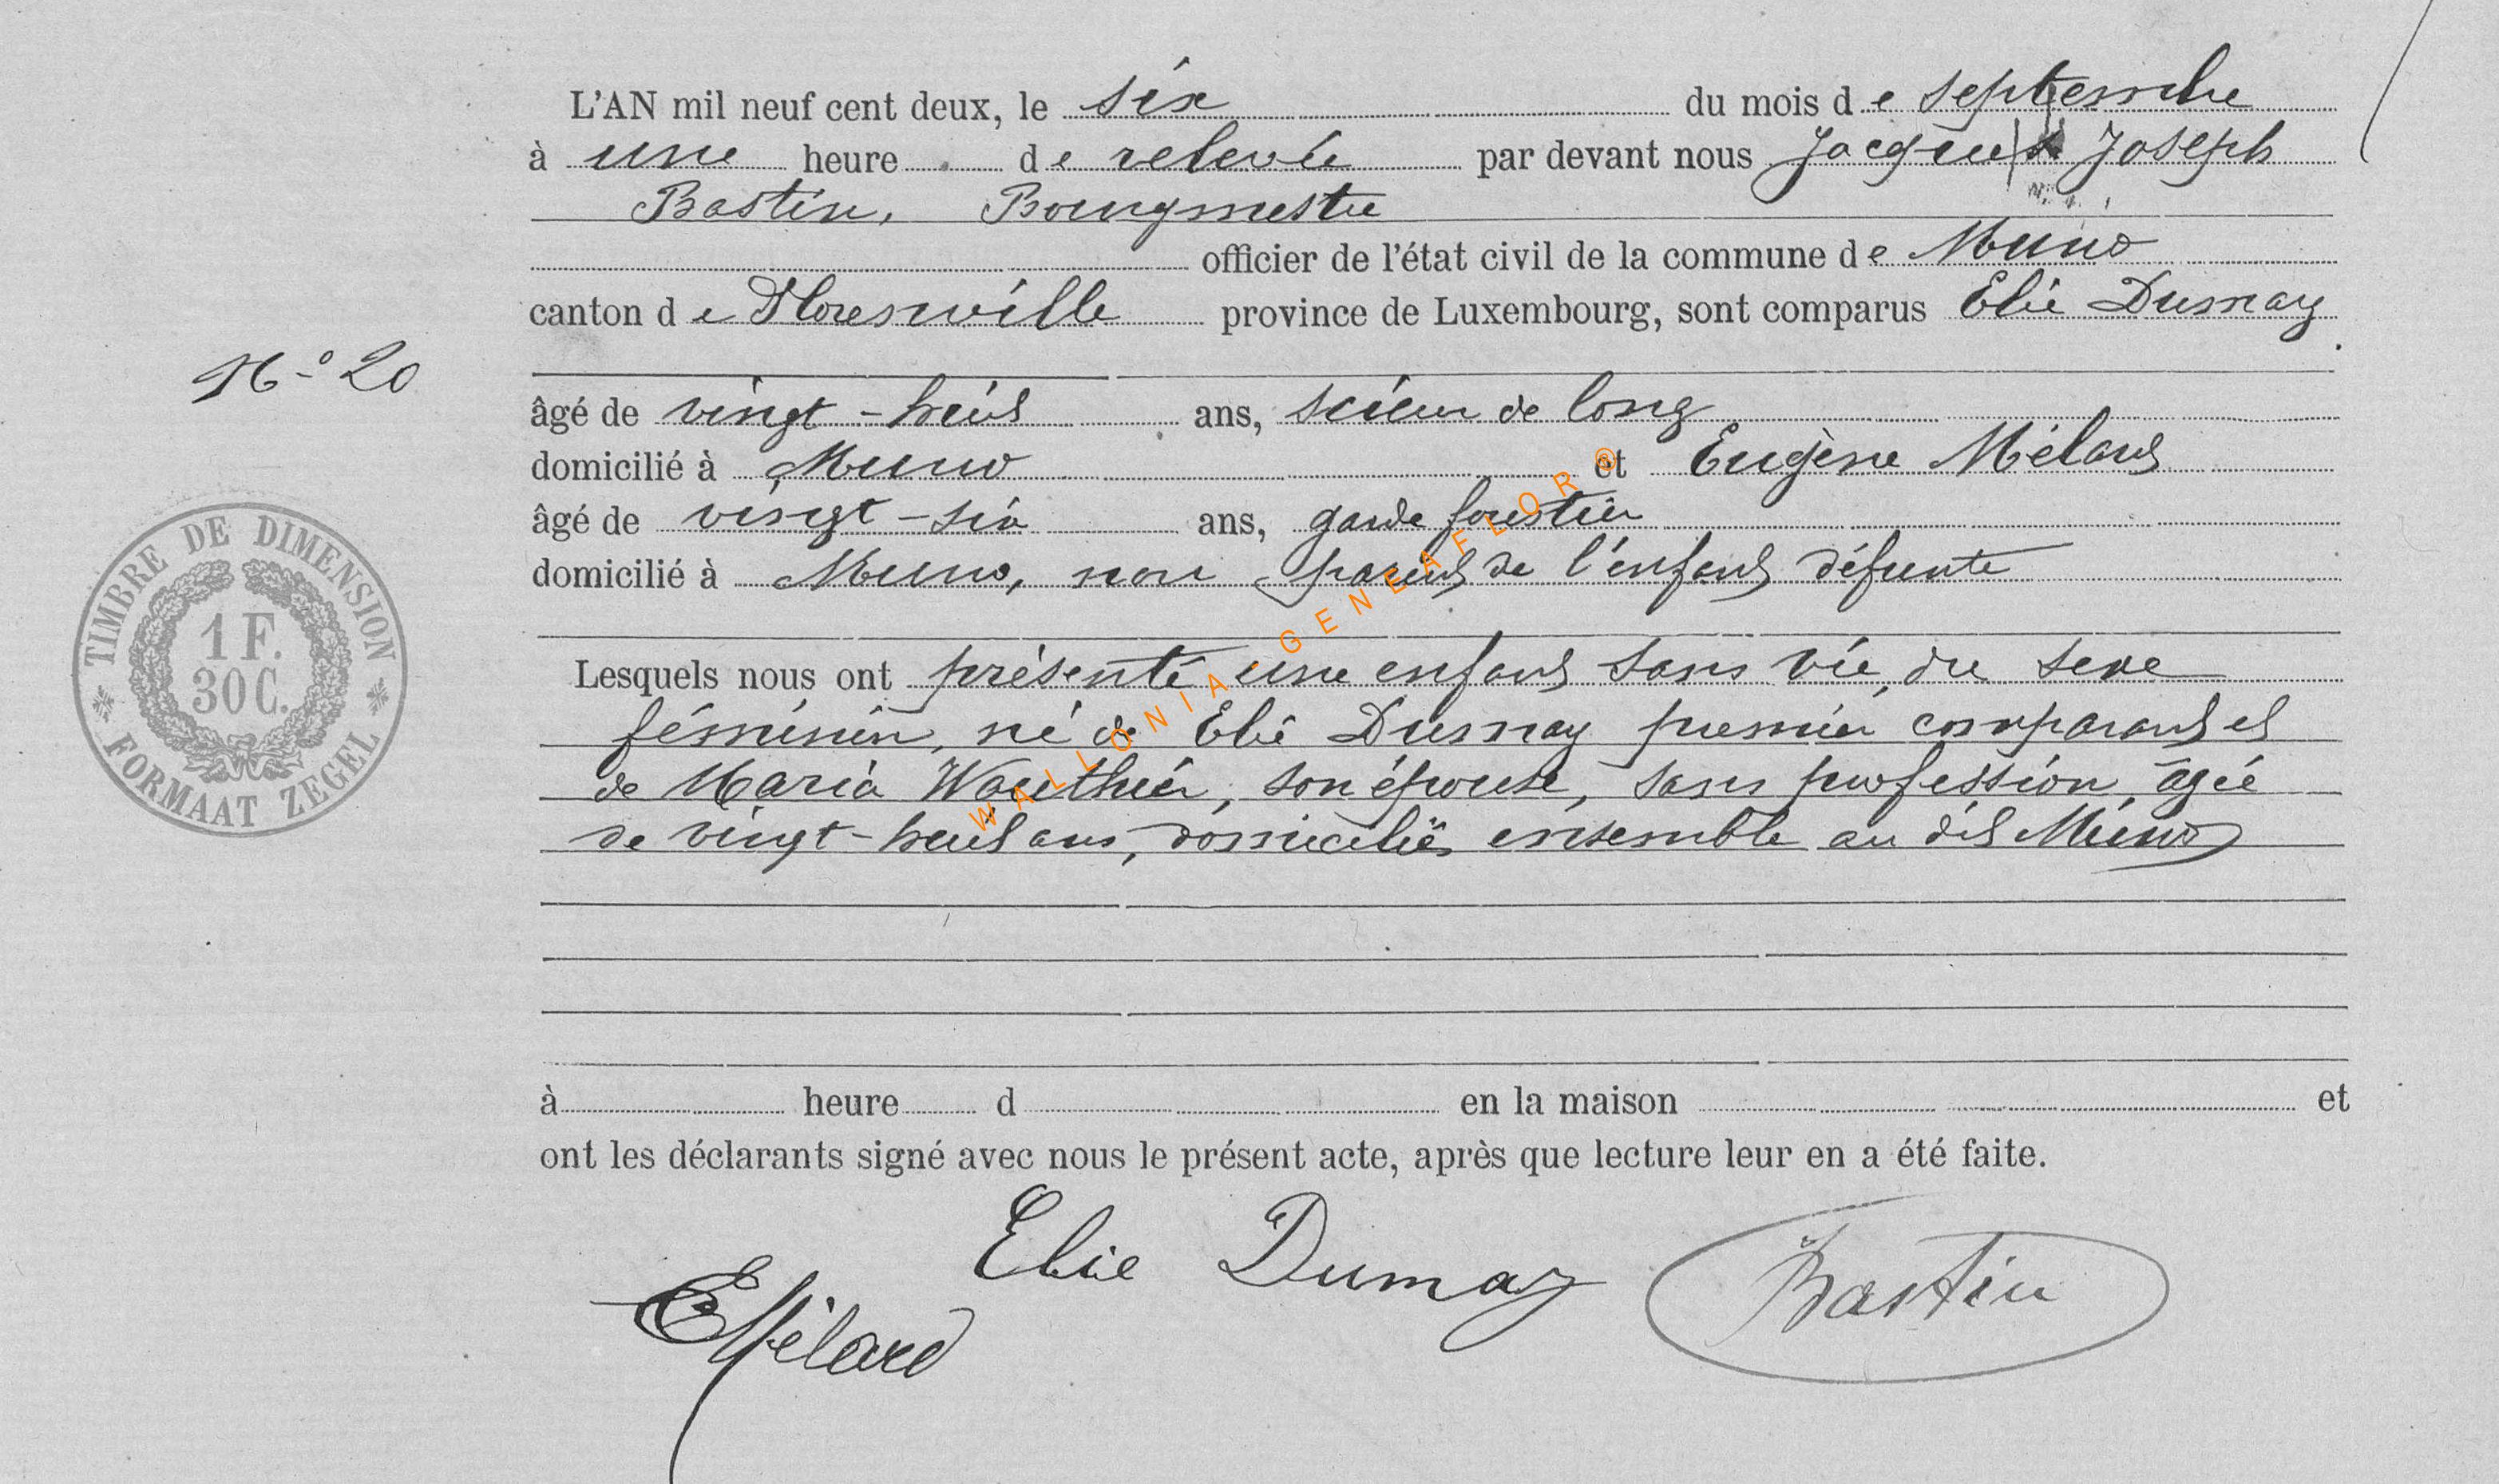 L'AN mil neuf cent deux, le six du mois de septembre
à une heure de relevée par devant nous Jacques Joseph
Bastin, Bourgmestre
officier de l'état civil de la commune de Muno
canton de Florenville province de Luxembourg, sont comparus Elie Dumay
N° 20
âgé de vingt-huit ans, scieur de long
domicilié à Muno et Eugène Mélard
âgé de vingt-six ans, garde forestier
domicilié à Muno, non parent de l'enfant défunte
Lesquels nous ont présenté une enfant sans vie, du sexe
féminin, né de Elie Dumay premier comparant et
de Maria Wauthier, son épouse, sans profession, âgée
de vingt-huit ans, domiciliés ensemble au dit Muno
à heure d en la maison et
ont les déclarants signé avec nous le présent acte, après que lecture leur en a été faite.
Elie Dumay
EMélard
Bastin
TIMBRE DE DIMENSION
1 F.
30 C.
FORMAAT ZEGEL
WALLONIA - GENEAFLOR ©